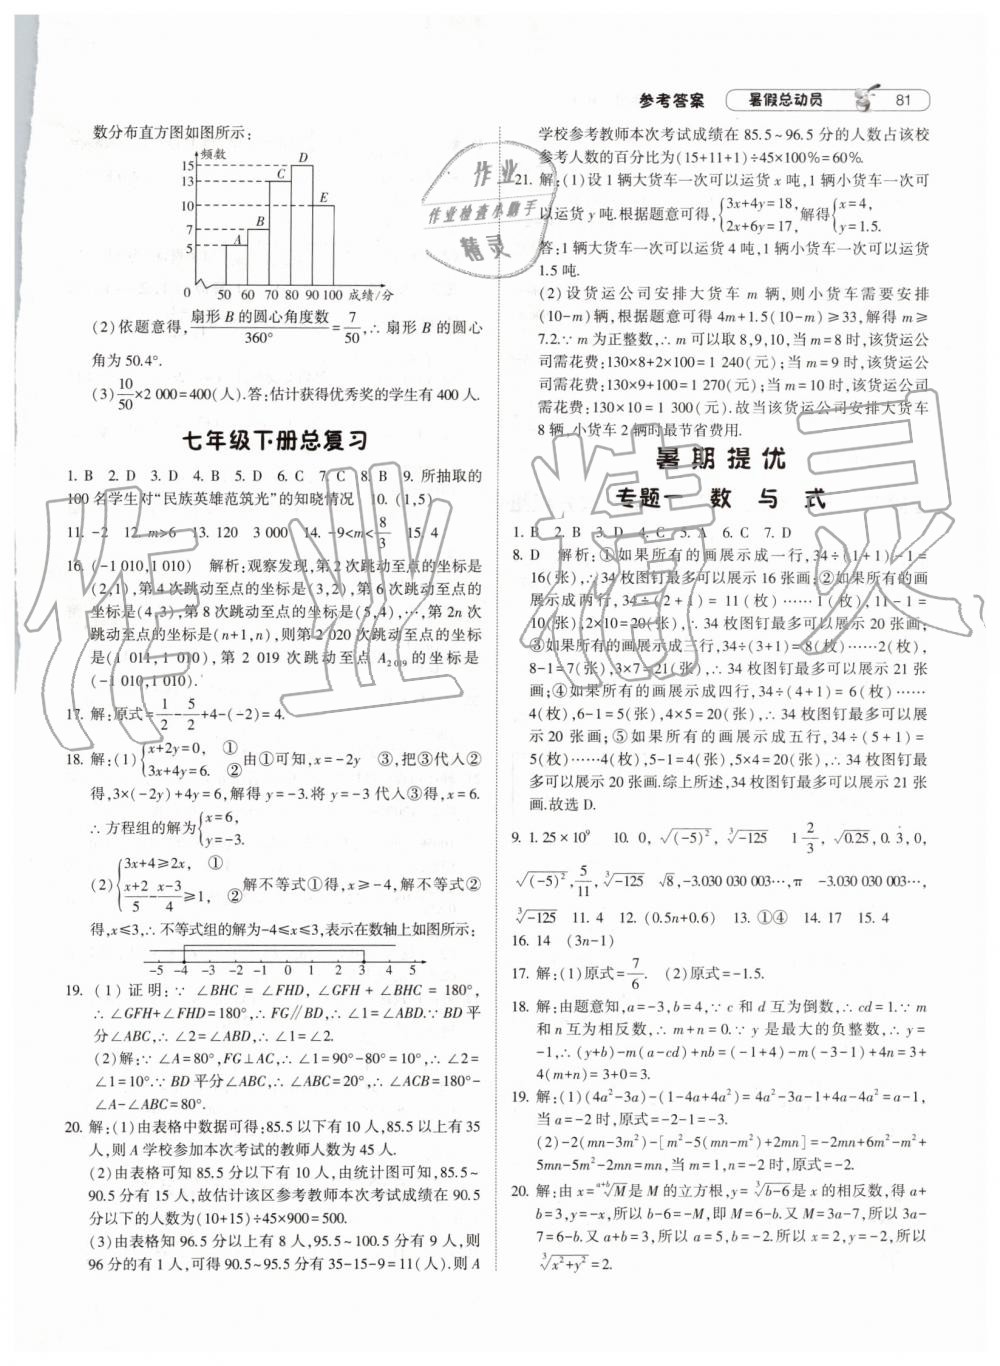 参考答案 暑假总动员 81
数分布直方图如图所示:
频数
15
13
10
7
5
0
A B C D E
50 60 70 80 90 100 成绩/分
(2)依题意得,扇形 B 的圆心角度数/360°=7/50,∴ 扇形 B 的圆心
角为 50.4°.
(3)10/50×2 000=400(人).答:估计获得优秀奖的学生有 400 人.
七年级下册总复习
1. B 2. D 3. D 4. B 5. D 6. C 7. B 8. B 9. 所抽取的
100 名学生对“民族英雄范筑光”的知晓情况 10. (1,5)
11. -2 12. m>6 13. 120 3 000 14. -9<m<8/3 15. 4
16. (-1 010,1 010) 解析:观察发现,第 2 次跳动至点的坐标是
(2,1),第 4 次跳动至点的坐标是(3,2),第 6 次跳动至点的
坐标是(4,3),第 8 次跳动至点的坐标是(5,4),…,第 2n 次
跳动至点的坐标是(n+1,n),则第 2 020 次跳动至点的坐标
是(1 011,1 010),第 2 019 次跳动至点 A2 019的坐标是
(-1 010,1 010).
17. 解:原式=1/2-5/2+4-(-2)=4.
18. 解:(1){x+2y=0, ① 3x+4y=6. ② 由①可知,x=-2y ③,把③代入②
得,3×(-2y)+4y=6,解得 y=-3.将 y=-3 代入③得,x=6.
∴ 方程组的解为{x=6, y=-3.
(2){3x+4≥2x, ① (x+2)/5-(x-3)/4≥1, ② 解不等式①得,x≥-4,解不等式②
得,x≤3,∴ 不等式组的解为-4≤x≤3,表示在数轴上如图所示:
-5 -4 -3 -2 -1 0 1 2 3 4 5
19. (1)证明:∵ ∠BHC=∠FHD,∠GFH+∠BHC=180°,
∴ ∠GFH+∠FHD=180°,∴ FG∥BD,∴ ∠1=∠ABD.∵ BD 平
分∠ABC,∴ ∠2=∠ABD,∴ ∠1=∠2.
(2)解:∵ ∠A=80°,FG⊥AC,∴ ∠1=90°-80°=10°,∴ ∠2=
∠1=10°.∵ BD 平分∠ABC,∴ ∠ABC=20°,∴ ∠ACB=180°-
∠A-∠ABC=80°.
20. 解:(1)由表格中数据可得:85.5 以下有 10 人,85.5 以上有 35
人,则 A 学校参加本次考试的教师人数为 45 人.
(2)由表格可知 85.5 分以下有 10 人,由统计图可知,85.5~
90.5 分有 15 人,故估计该区参考教师本次考试成绩在 90.5
分以下的人数为(10+15)÷45×900=500.
(3)由表格知 96.5 分以上有 8 人,95.5~100.5 分有 9 人,则
96 分的有 1 人,可得 90.5~95.5 分有 35-15-9=11(人).则 A
学校参考教师本次考试成绩在 85.5~96.5 分的人数占该校
参考人数的百分比为(15+11+1)÷45×100%=60%.
21. 解:(1)设 1 辆大货车一次可以运货 x 吨,1 辆小货车一次可
以运货 y 吨.根据题意可得,{3x+4y=18, 2x+6y=17, 解得{x=4, y=1.5.
答:1 辆大货车一次可以运货 4 吨,1 辆小货车一次可以运货
1.5 吨.
(2)设货运公司安排大货车 m 辆,则小货车需要安排
(10-m)辆,根据题意可得 4m+1.5(10-m)≥33,解得 m≥
7.2.∵ m 为正整数,∴ m 可以取 8,9,10,当 m=8 时,该货运公
司需花费:130×8+2×100=1 240(元);当 m=9 时,该货运公
司需花费:130×9+100=1 270(元);当 m=10 时,该货运公
司需花费:130×10=1 300(元).故当该货运公司安排大货车
8 辆,小货车 2 辆时最节省费用.
暑期提优
专题一 数与式
1. D 2. B 3. D 4. C 5. A 6. C 7. D
8. D 解析:①如果所有的画展示成一行,34÷(1+1)-1=
16(张),∴ 34 枚图钉最多可以展示 16 张画;②如果所有的画
展示成两行,34÷(2+1)=11(枚)……1(枚),11-1=
10(张),2×10=20(张),∴ 34 枚图钉最多可以展示 20 张画;
③如果所有的画展示成三行,34÷(3+1)=8(枚)……2(枚),
8-1=7(张),3×7=21(张),∴ 34 枚图钉最多可以展示 21 张
画;④如果所有的画展示成四行,34÷(4+1)=6(枚)……
4(枚),6-1=5(张),4×5=20(张),∴ 34 枚图钉最多可以展
示 20 张画;⑤如果所有的画展示成五行,34÷(5+1)=
5(枚)……4(枚),5-1=4(张),5×4=20(张),∴ 34 枚图钉最
多可以展示 20 张画.综上所述,34 枚图钉最多可以展示 21 张
画.故选 D.
9. 1.25×10⁹ 10. 0,√(-5)²,∛-125 1 2/3,√0.25,0.3̇,0,
√(-5)²,5/11,∛-125 √8,-3.030 030 003…,π -3.030 030 003…,
∛-125 11. 4 12. (0.5n+0.6) 13. ①④ 14. 17 15. 4
16. 14 (3n-1)
17. 解:(1)原式=7/6. (2)原式=-1.5.
18. 解:由题意知,a=-3,b=4,∵ c 和 d 互为倒数,∴ cd=1.∵ m
和 n 互为相反数,∴ m+n=0.∵ y 是最大的负整数,∴ y=
-1,∴ (y+b)-m(a-cd)+nb=(-1+4)-m(-3-1)+4n=3+
4(m+n)=3+0=3.
19. 解:(1)(4a²-3a)-(1-4a+4a²)=4a²-3a-1+4a-4a²=a-1,
当 a=-2 时,原式=-2-1=-3.
(2)-2(mn-3m²)-[m²-5(mn-m²)+2mn]=-2mn+6m²-m²+
5mn-5m²-2mn=mn,当 m=1,n=-2 时,原式=-2.
20. 解:由 x=ᵃ⁺ᵇ√M是 M 的立方根,y=∛b-6是 x 的相反数,得 a+
b=3,y=-x,所以 b-6=-M,即 M=6-b.又 M=3a-7,所以 3a-
7=6-b.又 a+b=3,所以 a=5,b=-2.所以 x=2,y=-2,所以
∛x²+y²=2.
作业
作业检查小助手
精灵
作业精灵